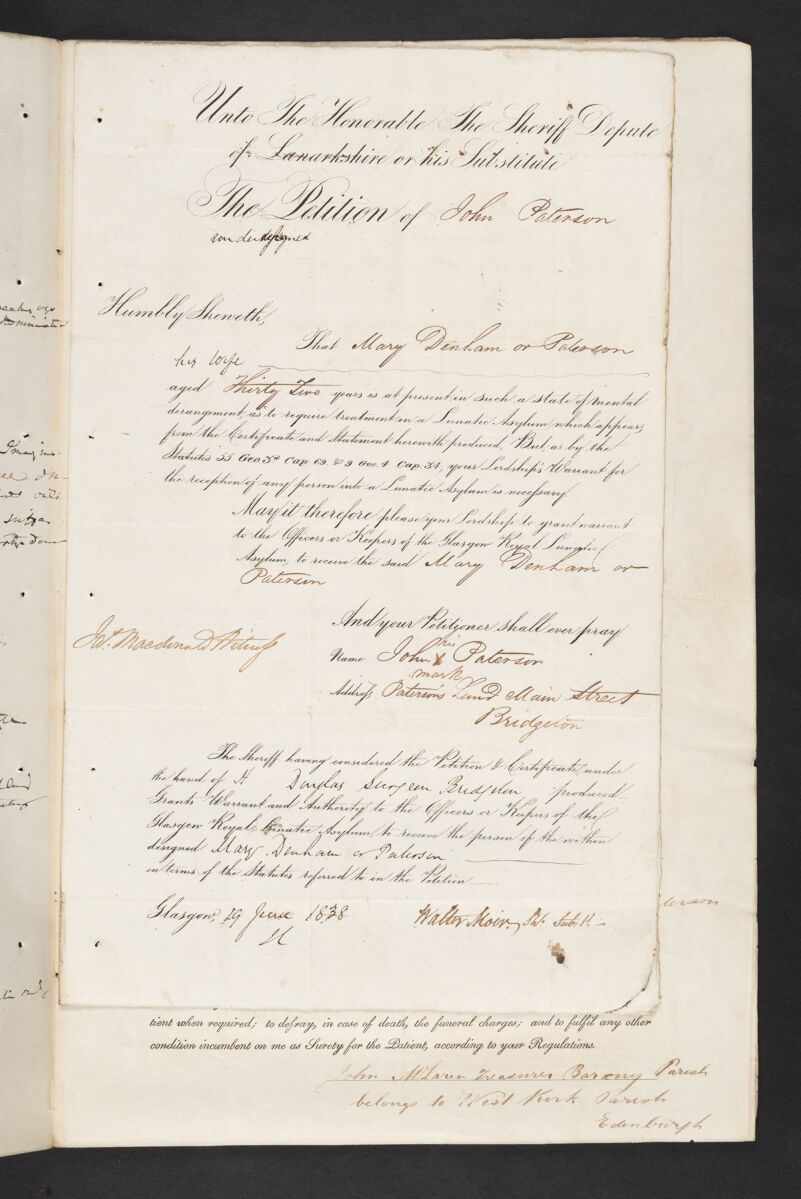 Unto The Honorable The Sheriff Depute
of Lanarkshire or his Substitute
The Petition of John Paterson
undersigned
Humbly Sheweth,
That Mary Denham or Paterson
his Wife
aged Thirty Two years is at present in such a state of mental
derangement, as to require treatment in a Lunatic Asylum, which appears
from the Certificate and Statement herewith produced, But, as by the
Statutes 55 Geo 3d Cap. 69. & 9 Geo. 4 Cap. 34, your Lordship's Warrant for
the reception of any person into a Lunatic Asylum is necessary
May it therefore please your Lordship to grant warrant
to the Officers or Keepers of the Glasgow Royal Lunatic
Asylum, to receive the said Mary Denham or
Paterson
And your Petitioner shall ever pray
Jas. Macdonald Witness
his
Name John X Paterson
mark
Address Paterson's Land Main Street
Bridgeton
The Sheriff having considered the Petition & Certificate, under
the hand of H Douglas Surgeon Bridgeton, produced
Grants Warrant and Authority to the Officers or Keepers of the
Glasgow Royal Lunatic Asylum, to receive the person of the within
designed Mary Denham or Paterson
in terms of the Statutes referred to in the Petition
Glasgow, 19 June 1838 Walter Moir, Sh. Subst.
tient when required; to defray, in case of death, the funeral charges; and to fulfil any other
condition incumbent on me as Surety for the Patient, according to your Regulations.
John McLaren Treasurer Barony Parish
belongs to West Kirk Parish
Edinburgh